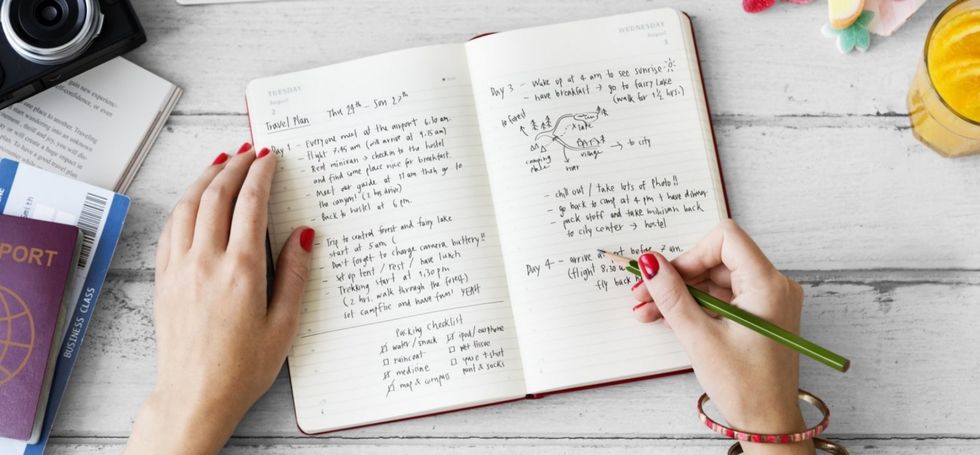 TUESDAY
August
2
Travel Plan Thu 24th - Sun 27th
Day 1 - Everyone meet at the airport 6.30 am.
- Flight 7.45 am (will arrive at 9.45 am)
- Rent minivan → checkin to the hostel
and find some place nice for breakfast.
- Meet our guide at 11 am then go to
the canyons! (2 hrs drive)
- Back to hostel at 6 pm.
- Trip to central forest and fairy lake
start at 5 am
Don't forget to charge camera battery!!
- Set up tent / rest / have lunch
- Trekking start at 1.30 pm
(2 hrs. walk through the forest)
- set campfire and have fun! YEAH
Packing Checklist
water/snack
raincoat
medicine
map & compass
ipod/earphone
wet tissue
spare t-shirt
pant & socks
WEDNESDAY
August
3
Day 3 - Wake up at 4 am to see sunrise
- have breakfast → go to fairy lake
(walk for 1 1/2 hrs.)
to forest
lake
camping
river
village
→ to city
- chill out / take lots of photo!!
- go back to camp at 4 pm + have dinner
- pack stuff and take minivan back
to city center → hostel
Day 4 - arrive before 7 am.
(flight 8.30
fly back
PORT
BUSINESS CLASS
new experien-
self-confidence, or even
place to another. Traveling